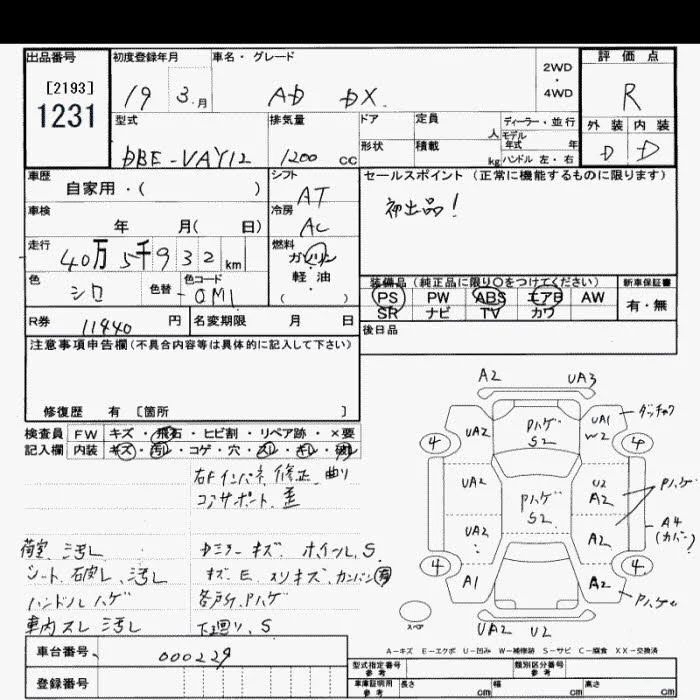 出品番号 初度登録年月 車名・グレード 2WD・4WD 評価点
[2193]
1231
19 3.月 AD DX. R
型式 排気量 ドア 定員 人 ディーラー・並行 外装 内装
モデル年式 年
DBE-VAY12 1200 cc 形状 積載 kg ハンドル 左・右 D D
車歴 シフト セールスポイント(正常に機能するものに限ります)
自家用・( ) AT 初出品!
車検 冷房
年 月( 日) AC
走行 燃料
40万5千932 km ガソリン
軽・油
( )
色 色替 色コード 装備品(純正品に限り○をつけてください) 新車保証書
シロ - OM1 PS PW ABS エアB AW 有・無
SR ナビ TV カワ
R券 11440 円 名変期限 月 日 後日品
注意事項申告欄(不具合内容等は具体的に記入して下さい)
修復歴 有 [箇所 ]
検査員 FW キズ・飛石・ヒビ割・リペア跡・×要
記入欄 内装 キズ・汚レ・コゲ・穴・スレ・キレ・破レ
右Fインパネ 修正、曲り
コアサポート、歪
荷室 汚レ ドミラーキズ ホイール、S
シート、破レ、汚レ キズ、E、スリキズ、カンバン
ハンドルハゲ 各所、Pハゲ
車内スレ汚レ 下廻り、S
A2 UA3
UA2 Pハゲ S2 UA1 W2
4 4
UA2 Pハゲ S2 U2 A2 Pハゲ
UA2 A2 A4
(カバー)
4 4
A1 A2 Pハゲ
スペア
UA2 U2
A-キズ E-エクボ U-凹み W-補修跡 S-サビ C-腐食 XX-交換済
車台番号 000229
登録番号
型式指定番号 参考 類別区分番号 参考
車庫証明用 参考 長さ cm 幅 cm 高さ cm